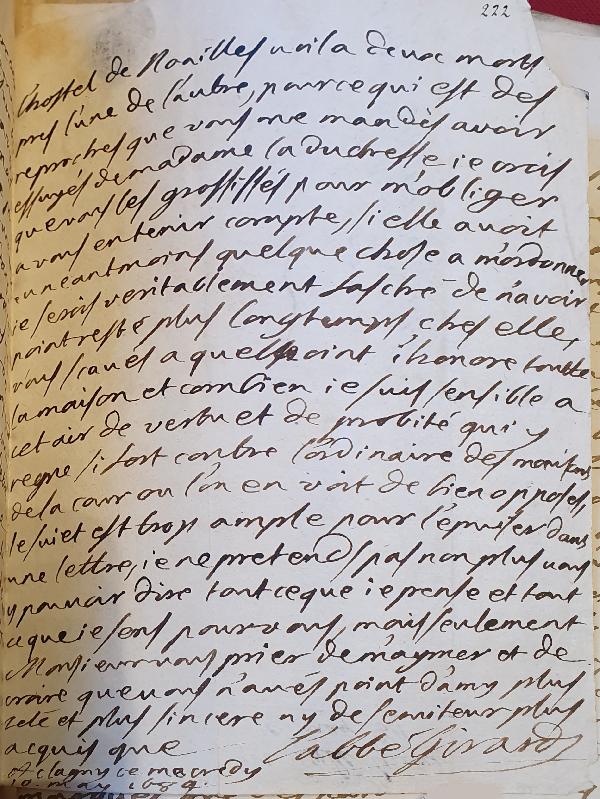 222
l'hostel de Noailles voila deux morts
pres l'une de l'autre, pour ce qui est des
reproches que vous me mandés avoir
essuyés de madame la duchesse ie crois
que vous les grossissés pour m'obliger
a vous en tenir compte, si elle avoit
neantmoins quelque chose a m'ordonner
ie serois veritablement fasché de n'avoir
point resté plus longtemps chés elle,
vous sçavés a quel point i'honore toutte
la maison et combien ie suis sensible a
cet air de vertu et de probité qui y
regne si fort contre l'ordinaire des maisons
de la cour ou l'on en voit de bien opposés,
le suiet est trop ample pour l'épuiser dans
une lettre, ie ne pretends pas non plus vous
y pouvoir dire tout ce que ie pense et tout
ce que ie sens pour vous, mais seulement
Monsieur vous prier de m'aymer et de
croire que vous n'avés point d'amy plus
zelé et plus sincere ny de serviteur plus
acquis que L'abbé Girard
A clagny ce mecredy
10. may 1684.